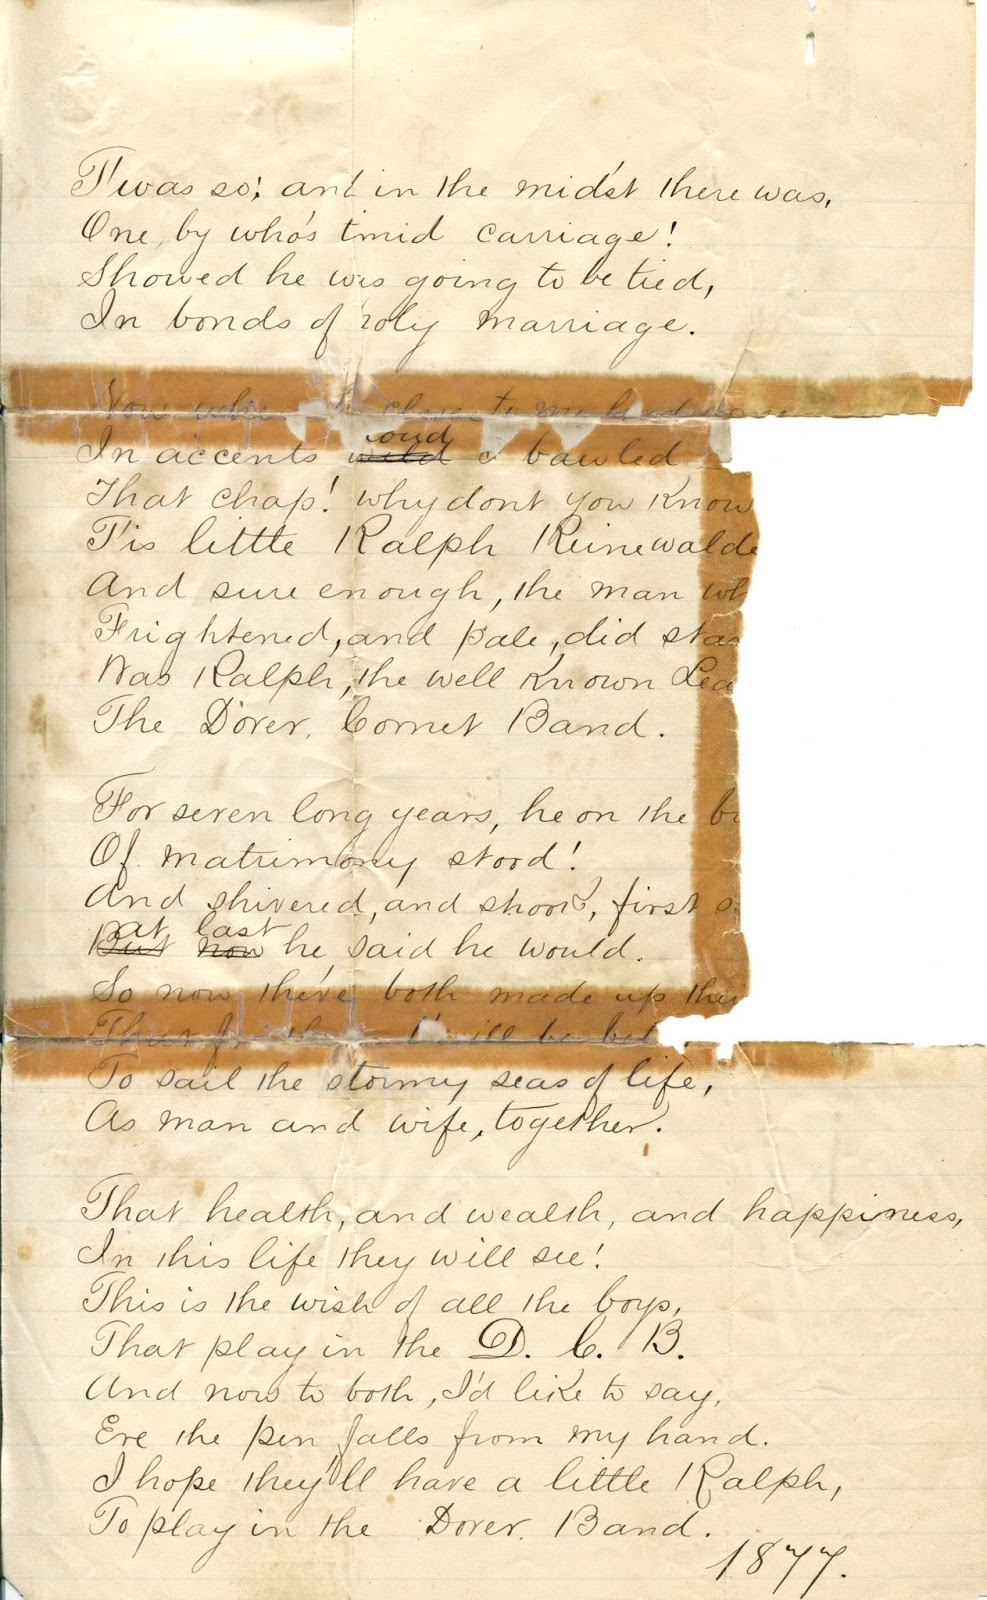 T'was so; and in the mid'st there was,
One, by who's timid carriage!
Showed he was going to be tied,
In bonds of holy marriage.
Now who close to me
In accents wild loud I bawled
That chap! why dont you know
T'is little Ralph Reinewalde
And sure enough, the man wh
Frightened, and pale, did stan
Was Ralph, the well known Lea
The Dover, Cornet Band.
For seven long years, he on the br
Of matrimony stood!
And shivered, and shook, first s
But now at last he said he would.
So now the've both made up thei
t'will be bet
To sail the stormy seas of life,
As man and wife, together.
That health, and wealth, and happiness,
In this life they will see!
This is the wish of all the boys,
That play in the D. C. B.
And now to both, I'd like to say,
Ere the pen falls from my hand.
I hope they'll have a little Ralph,
To play in the Dover. Band.
1877.